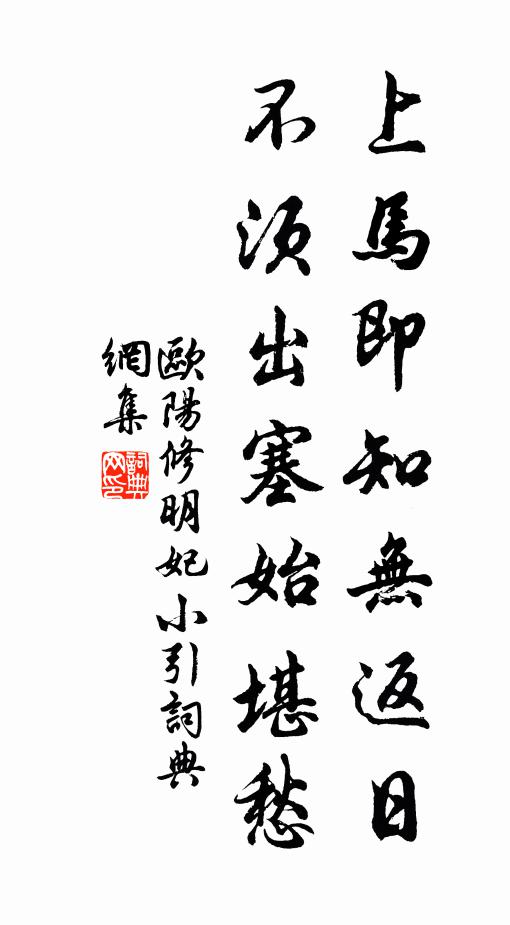 上馬即知無返日
不須出塞始堪愁
歐陽修明妃小引詞典
網集
詞典網印